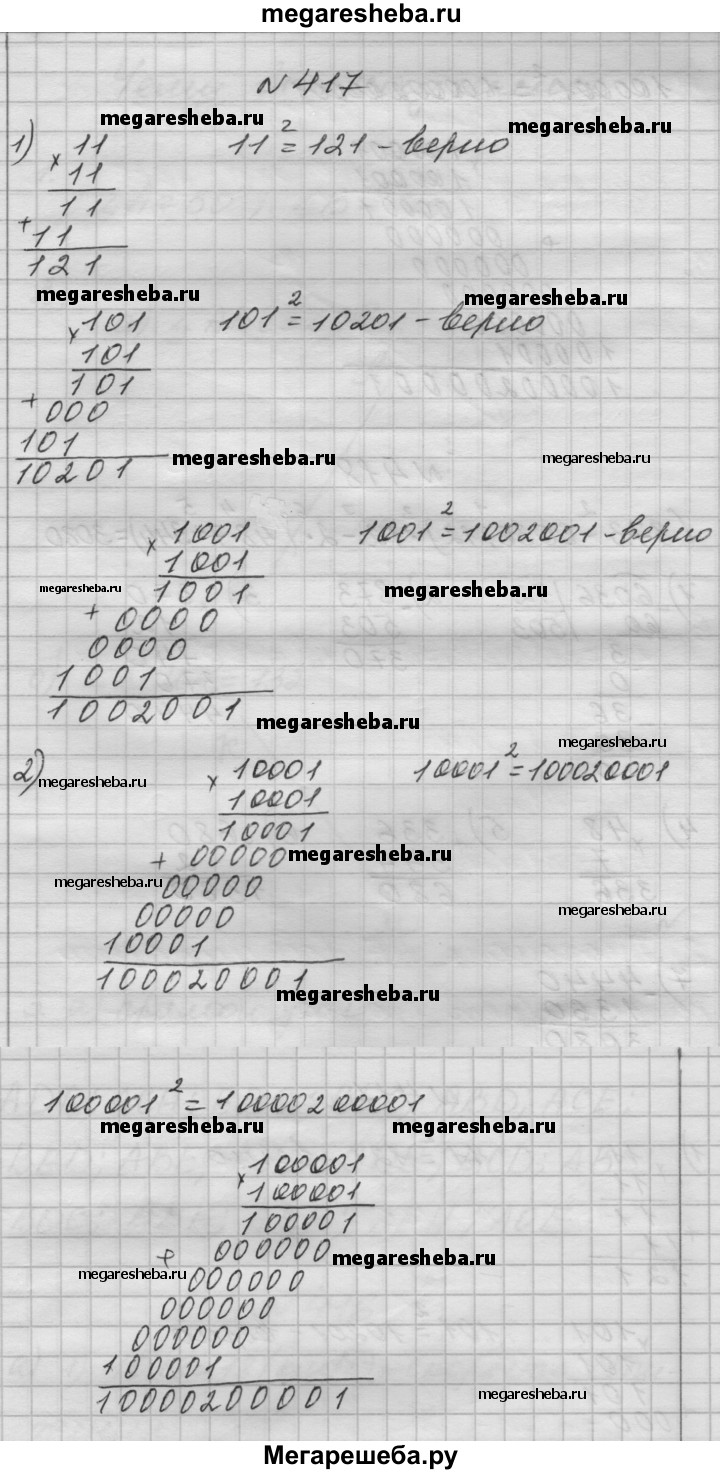 megaresheba.ru
N417
megaresheba.ru
megaresheba.ru
1) × 11 11² = 121 - верно
11
11
+ 11
121
megaresheba.ru
megaresheba.ru
× 101 101² = 10201 - верно
101
101
+ 000
101
10201
megaresheba.ru
megaresheba.ru
× 1001 1001² = 1002001 - верно
1001
megaresheba.ru
megaresheba.ru
1001
+ 0000
0000
1001
1002001
megaresheba.ru
megaresheba.ru
2) megaresheba.ru
× 10001 10001² = 100020001
10001
10001
+ 00000
megaresheba.ru
megaresheba.ru
00000
00000
megaresheba.ru
10001
100020001
megaresheba.ru
100001² = 10000200001
megaresheba.ru
megaresheba.ru
× 100001
100001
100001
+ 000000
megaresheba.ru
megaresheba.ru
000000
000000
000000
100001
10000200001
megaresheba.ru
Мегарешеба.ру